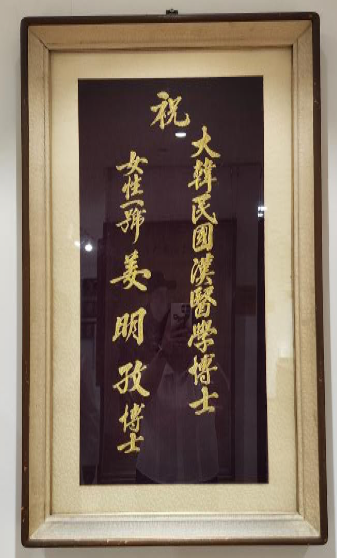 祝
大韓民國漢醫學博士
女性一號 姜明孜博士